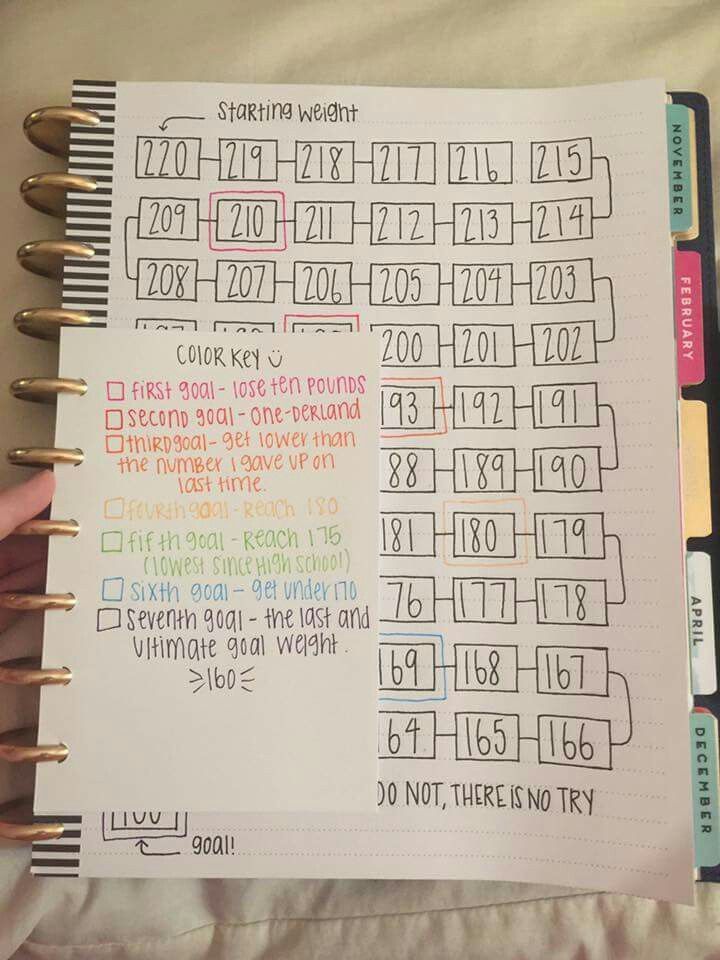 Starting Weight
220 219 218 217 216 215
209 210 211 212 213 214
208 207 206 205 204 203
200 201 202
COLOR KEY
first goal - lose ten pounds
second goal - one-derland
third goal - get lower than
the number I gave up on
last time.
fourth goal - Reach 180
fifth goal - Reach 175
(lowest since high school)
sixth goal - get under 170
seventh goal - the last and
ultimate goal weight.
160
193 192 191
88 189 190
181 180 179
76 177 178
169 168 167
64 165 166
DO NOT, THERE IS NO TRY
goal!
NOVEMBER
FEBRUARY
APRIL
DECEMBER